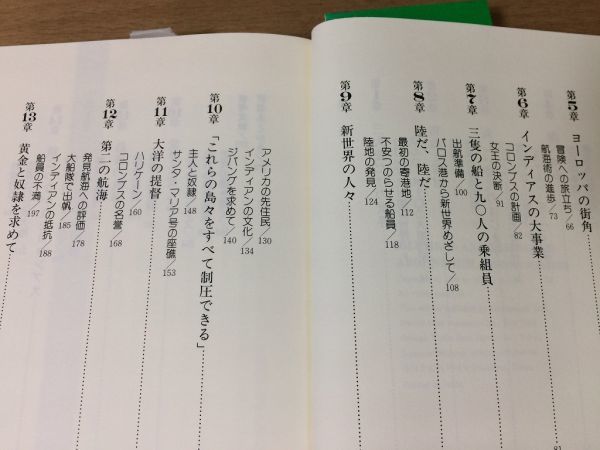 第5章 ヨーロッパの街角
冒険への旅立ち/66
航海術の進歩/73
第6章 インディアスの大事業
コロンブスの計画/82
女王の決断/91
第7章 三隻の船と九〇人の乗組員
出航準備/100
パロス港から新世界めざして/108
第8章 陸だ、陸だ
最初の寄港地/112
不安つのらせる船員/118
陸地の発見/124
第9章 新世界の人々
アメリカの先住民/130
インディアンの文化/134
ジパングを求めて/140
第10章 「これらの島々をすべて制圧できる」
主人と奴隷/148
サンタ・マリア号の座礁/153
第11章 大洋の提督
ハリケーン/160
コロンブスの名誉/168
第12章 第二の航海
発見航海への評価/178
大船隊で出帆/185
インディアンの抵抗/188
船員の不満/197
第13章 黄金と奴隷を求めて
81